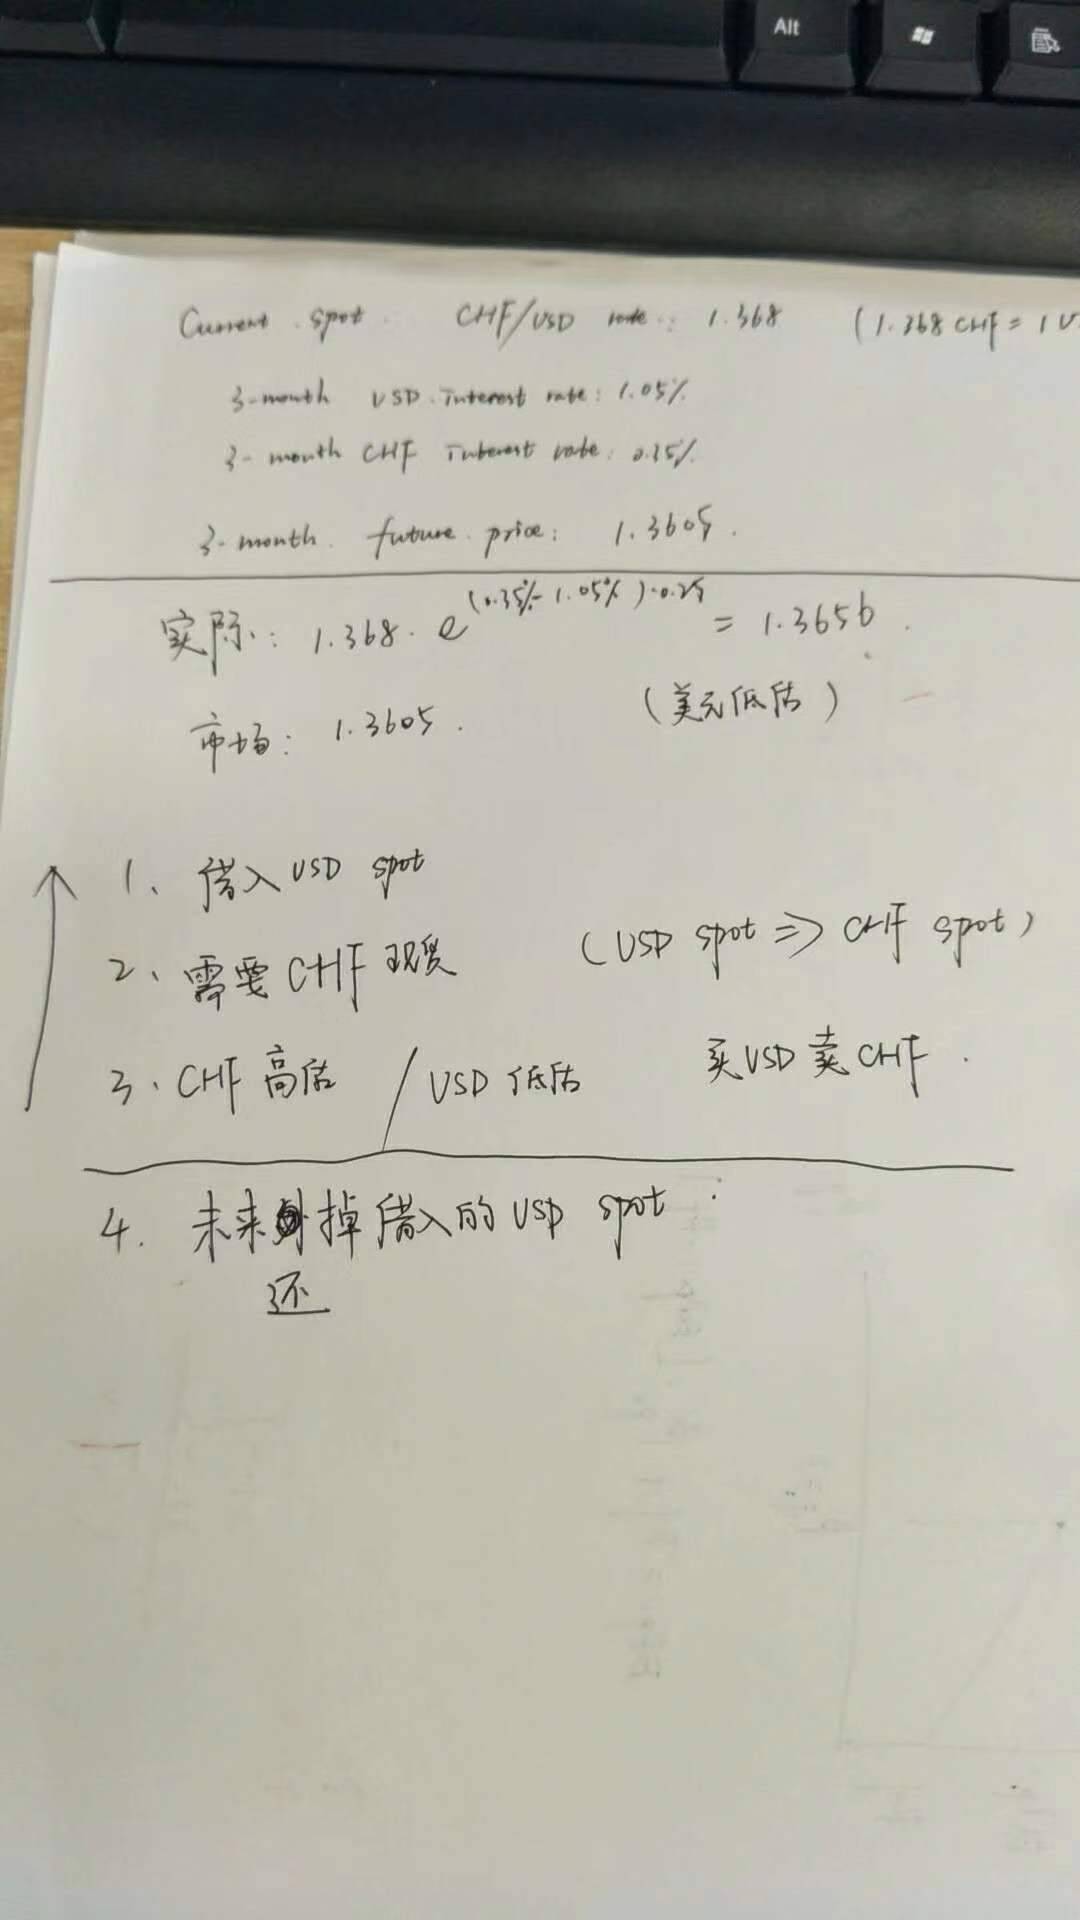 Alt
Current spot CHF/USD rate: 1.368 (1.368 CHF = 1 U
3-month USD Interest rate: 1.05%
3-month CHF Interest rate: 0.35%
3-month future price: 1.3605.
实际: 1.368·e^(0.35%-1.05%)·0.25 = 1.3656.
市场: 1.3605. (美元低估)
1、借入USD spot
2、需要CHF现货 (USD spot ⇒ CHF spot)
3、CHF高估 / USD低估 买USD卖CHF.
4. 未来掉借入的USD spot.
还